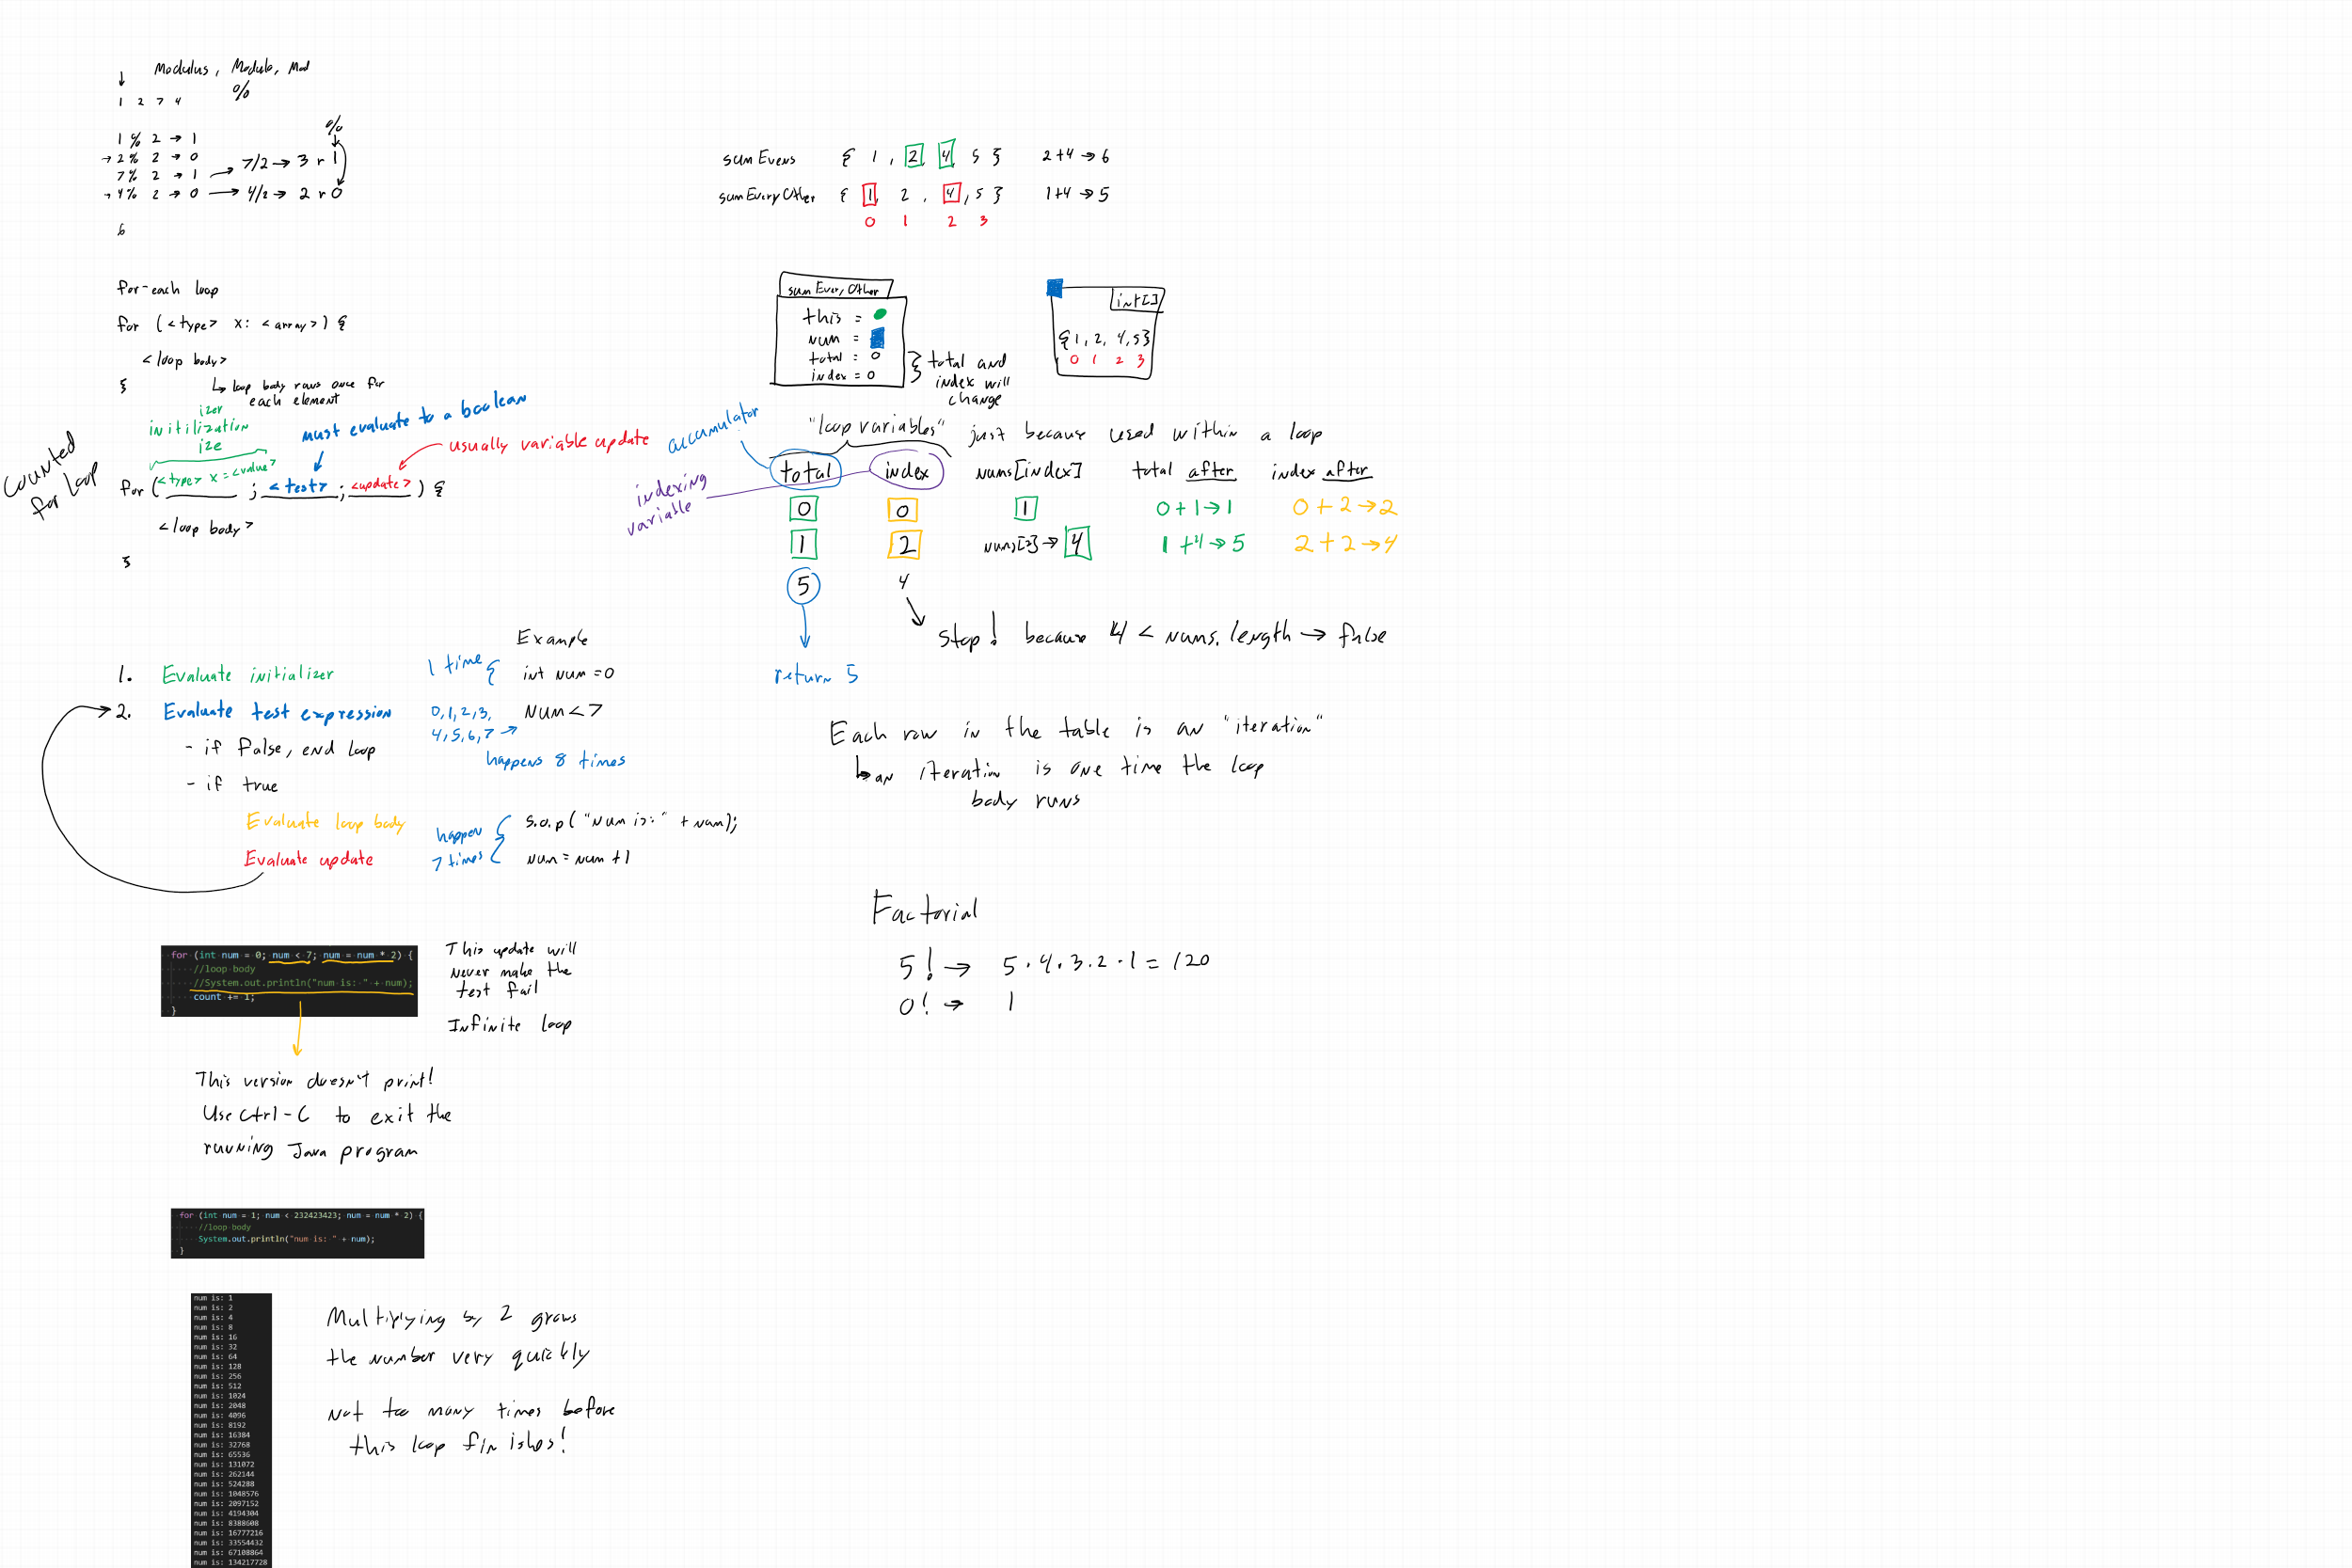 Modulus, Modulo, Mod
%
↓
1 2 7 4
%
1 % 2 → 1
→ 2 % 2 → 0
7 % 2 → 1 → 7/2 → 3 r 1
→ 4 % 2 → 0 → 4/2 → 2 r 0
6
for-each loop
for (<type> x: <array>) {
<loop body>
}
↳ loop body runs once for
each element
izer
initilization
ize
must evaluate to a boolean
usually variable update
counted
for loop
<type> x = <value>
for ( ; <test> ; <update> ) {
<loop body>
}
Example
1. Evaluate initializer 1 time { int num = 0
2. Evaluate test expression 0, 1, 2, 3, num < 7
4, 5, 6, 7 →
- if false, end loop
happens 8 times
- if true
Evaluate loop body happen { S.o.p("Num is:" + num);
Evaluate update 7 times num = num + 1
for (int num = 0; num < 7; num = num * 2) {
//loop body
//System.out.println("num is: " + num);
count += 1;
}
This update will
never make the
test fail
Infinite loop
This version doesn't print!
Use Ctrl-C to exit the
running Java program
for (int num = 1; num < 232423423; num = num * 2) {
//loop body
System.out.println("num is: " + num);
}
num is: 1
num is: 2
num is: 4
num is: 8
num is: 16
num is: 32
num is: 64
num is: 128
num is: 256
num is: 512
num is: 1024
num is: 2048
num is: 4096
num is: 8192
num is: 16384
num is: 32768
num is: 65536
num is: 131072
num is: 262144
num is: 524288
num is: 1048576
num is: 2097152
num is: 4194304
num is: 8388608
num is: 16777216
num is: 33554432
num is: 67108864
num is: 134217728
Multiplying by 2 grows
the number very quickly
not too many times before
this loop finishes!
sumEvens { 1, 2, 4, 5 } 2+4 → 6
sumEveryOther { 1, 2, 4, 5 } 1+4 → 5
0 1 2 3
sumEveryOther
this =
num =
total = 0
index = 0
} total and
index will
change
int[]
{1, 2, 4, 5}
0 1 2 3
accumulator
"loop variables" just because used within a loop
indexing
variable
total index nums[index] total after index after
0 0 1 0+1→1 0+2→2
1 2 nums[2]→ 4 1+4→5 2+2→4
5 4
Stop! because 4 < nums.length → false
return 5
Each row in the table is an "iteration"
↳ an iteration is one time the loop
body runs
Factorial
5! → 5·4·3·2·1 = 120
0! → 1